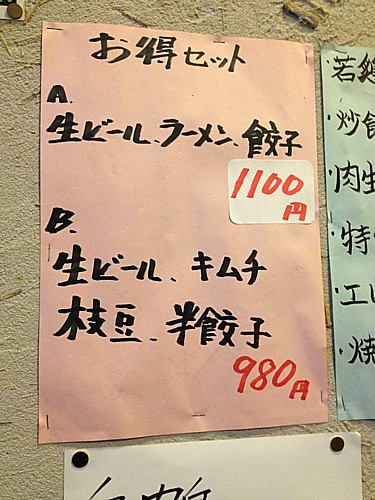 お得セット
A.
生ビール、ラーメン、餃子
1100円
B.
生ビール、キムチ
枝豆、半餃子
980円
若鶏
・炒飯
・肉生
・特
・エビ
・焼